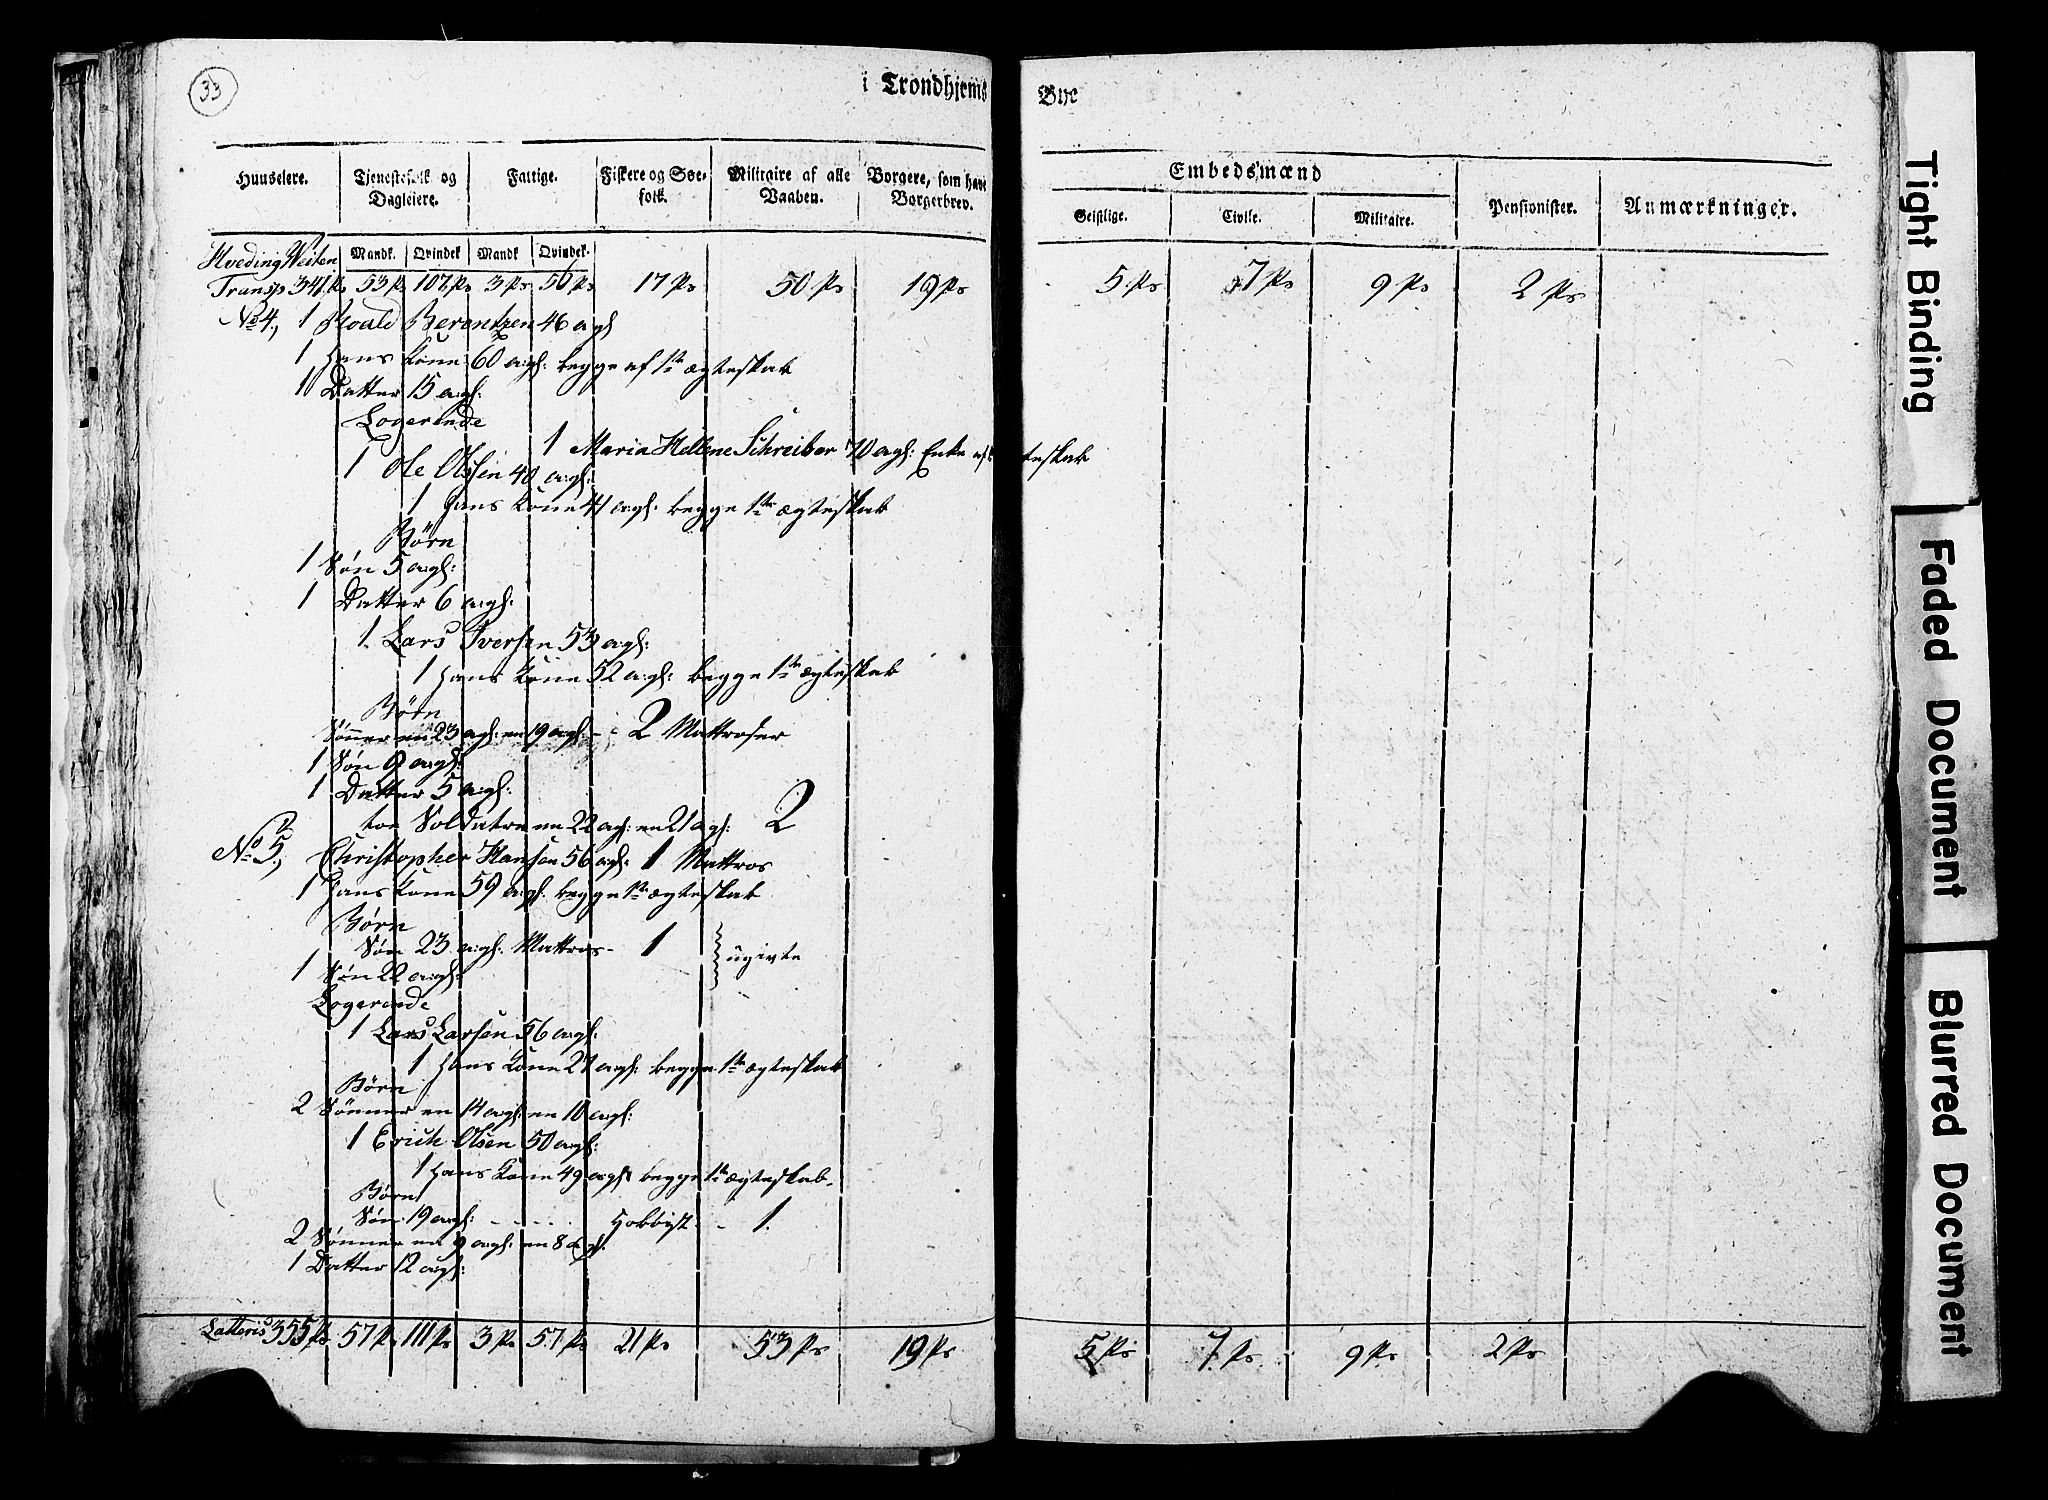 33
i Trondhjems Bye
Huuseiere. Tjenestefolk og Dagleiere. Fattige. Fiskere og Søefolk. Militaire af alle Vaaben. Borgere, som have Borgerbrev. Embedsmænd Pensionister. Anmærkninger.
Geistlige. Civile. Militaire.
Mandk. Qvindek Mandk Qvindek.
Hveding Weiten
Transp 341 Ps 53 Ps 107 Ps 3 Ps 56 Ps 17 Ps 50 Ps 19 Ps 5 Ps 7 Ps 9 Ps 2 Ps
No 4, 1 Roald Berentzen 46 agl
1 Hans Kone 60 agl: begge af 1te ægteskab
1 Datter 15 agl:
Logerende
1 Maria Hellene Schreiber 70 agl: Enke af teskab
1 Ole Olsen 40 agl:
1 Hans Kone 41 agl: begge 1te ægteskab
Börn
1 Søn 5 agl:
1 Datter 6 agl:
1 Lars Iversen 53 agl:
1 Hans Kone 52 agl: begge 1te ægteskab
Börn
Sønner en 23 agl: en 19 agl - - 2 Mattroser
1 Søn 9 agl:
1 Datter 5 agl:
toe Soldatere en 22 agl: en 21 agl: 2
No 5, Christopher Hansen 56 agl: 1 Mattros
1 Hans Kone 59 agl: begge 1te ægteskab
Börn
Søn 23 agl: Mattros - 1
ugivte
1 Søn 22 agl:
Logerende
1 Lars Larsen 56 agl:
1 Hans Kone 27 agl: begge 1te ægteskab
Börn
2 Sønner en 14 agl: en 10 agl:
1 Erich Olsen 50 agl:
1 Hans Kone 49 agl: begge 1te ægteskab.
Börn
Søn 19 agl: - - - - Hoboist - - 1.
2 Sønner en 9 agl: en 8 agl:
1 Datter 12 agl:
Latteris 355 Ps 57 Ps 111 Ps 3 Ps 57 Ps 21 Ps 53 Ps 19 Ps 5 Ps 7 Ps 9 Ps 2 Ps
Tight Binding
Faded Document
Blurred Document